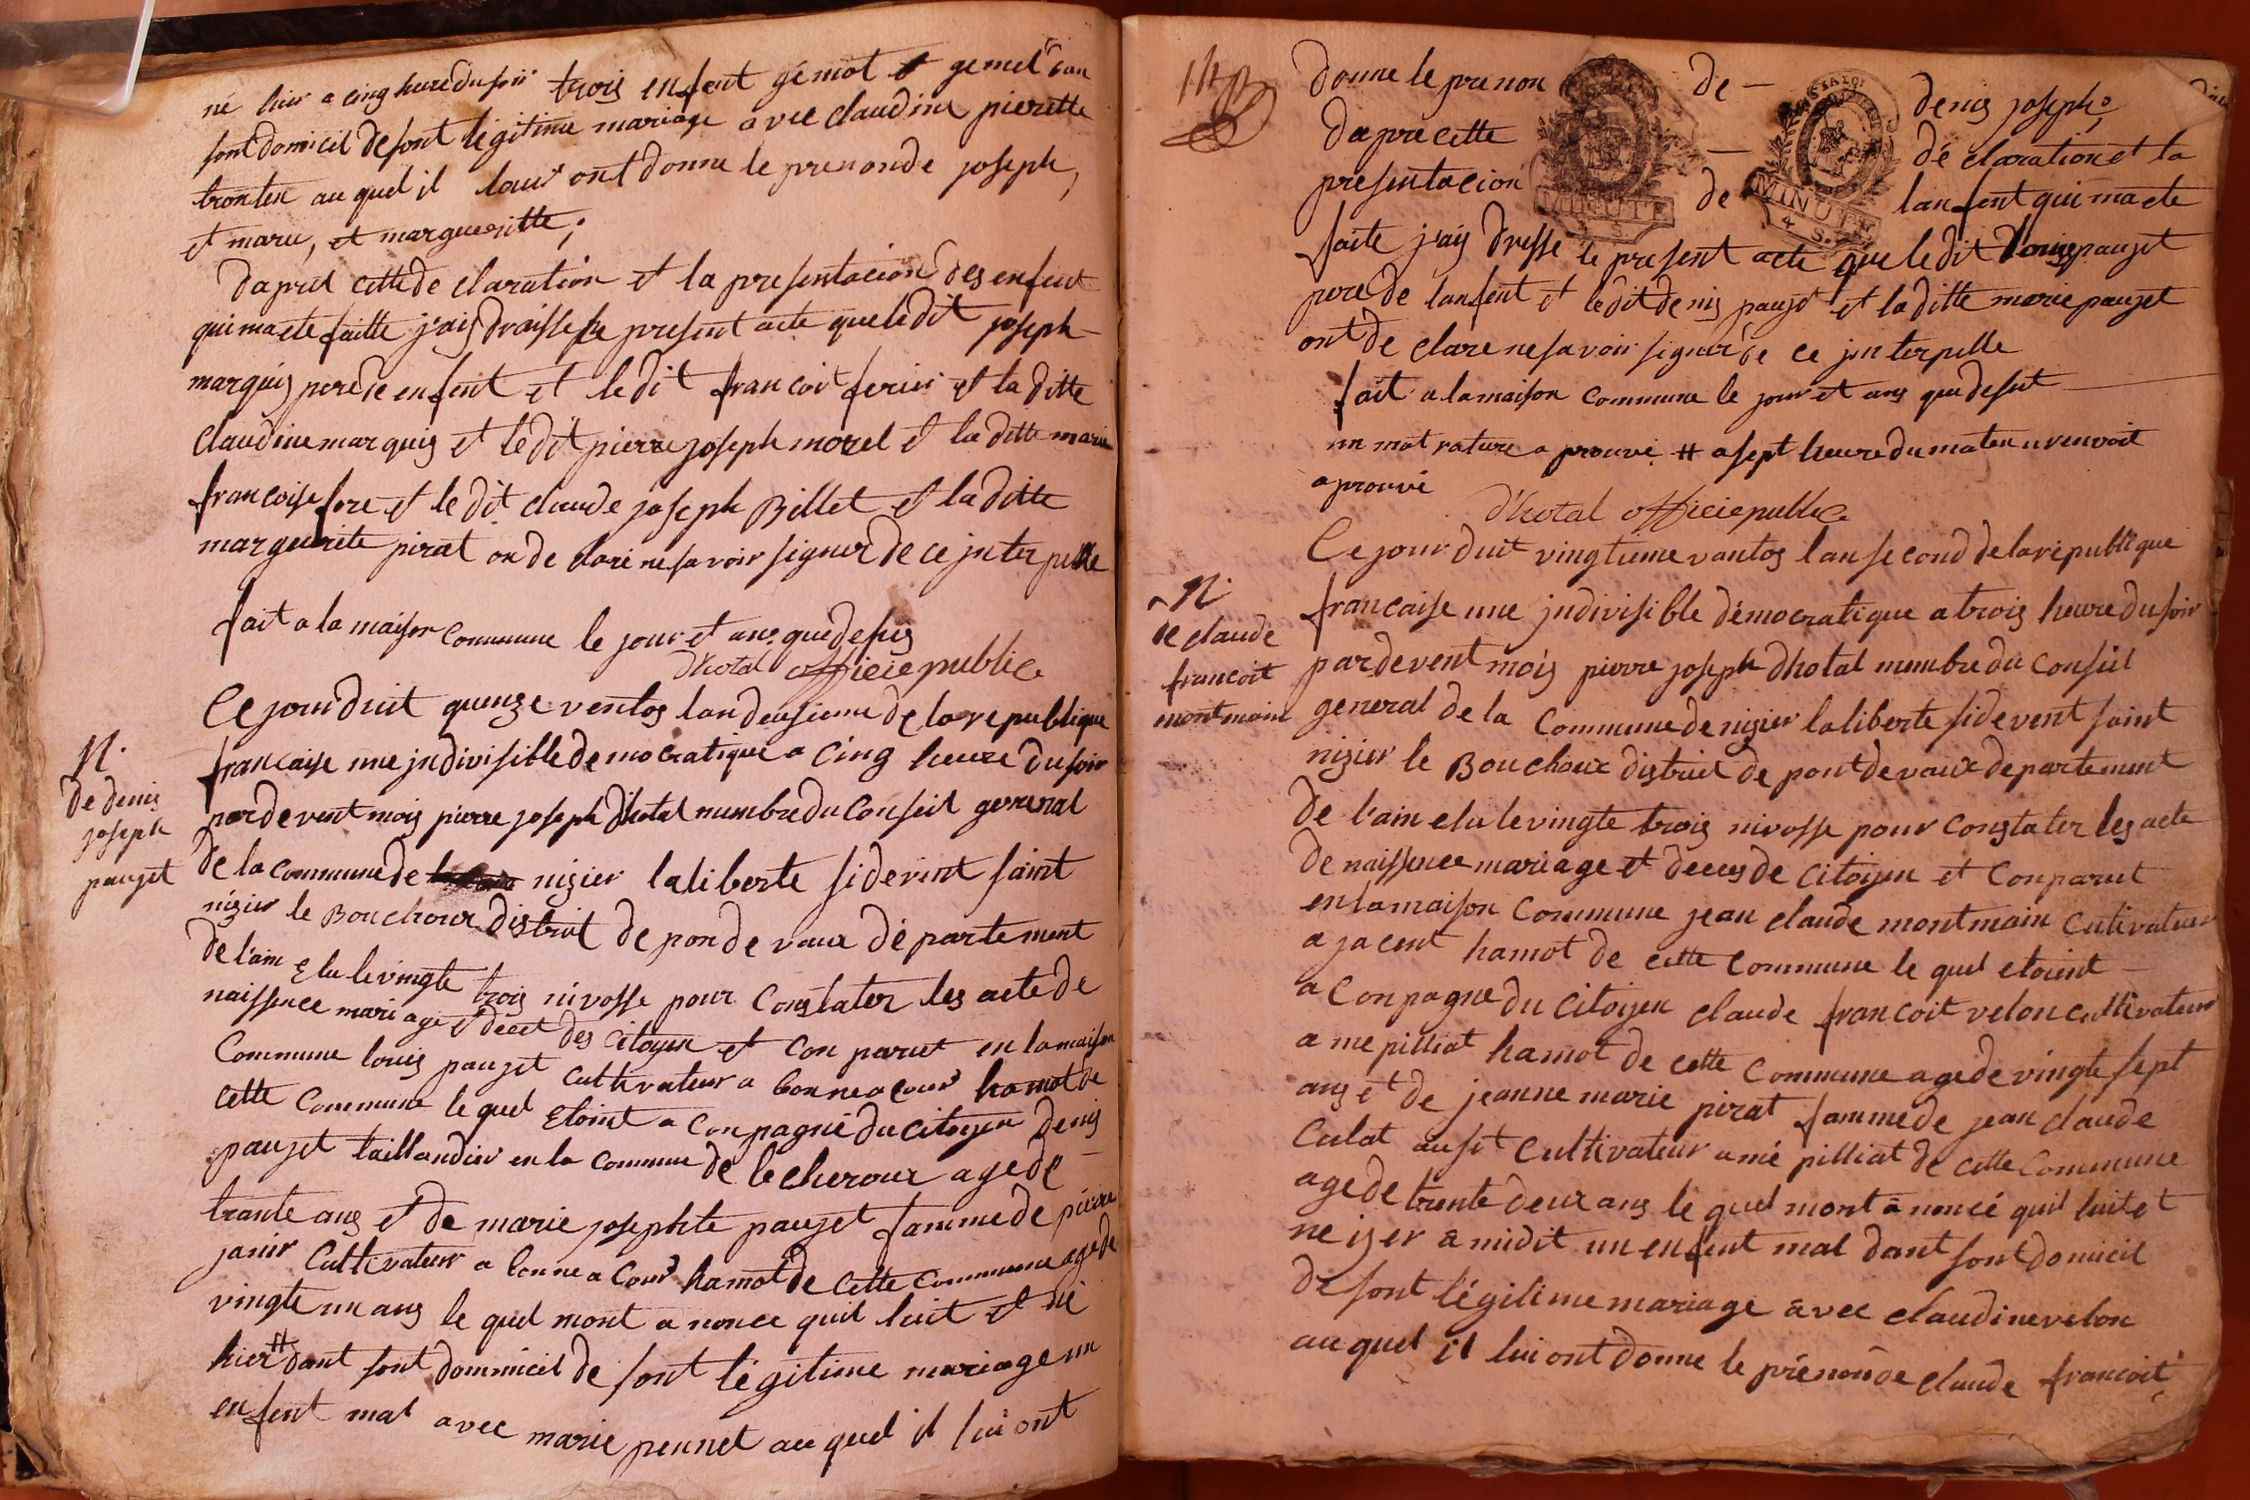 né hier a cinq heure du soir trois enfent gémot et gemel dan
sont domicil de sont légitime mariage avec claudine pierette
tronten au quel il leur ont donne le prenon de joseph,
et marie, et margueritte;
daprét cette de claration et la presentacion des enfent
qui ma ete faitte j'ais draisse le present acte que le dit joseph
marquis pere de enfent et le dit francoit ferier et la ditte
Claudine marquis et le dit pierre joseph morel et la ditte marie
francoise fore et le dit claude joseph Billet et la ditte
marguerite pirat on de claré ne savoir signer de ce jnter pelle
fait a la maison commune le jour et ans que desus
d'hotal officie public
N.
de denis
joseph
paujet
Ce jour duit quenze ventos lan deusieme de la republique
francaise une jndivisible democratique a cinq heure du soir
par de vent mois pierre joseph d'hotal membre du Conseil general
de la commune de nizier la liberte si devent saint
nizier le Bouchoux distrit de pon de vaux département
de l'ain elu le vingte trois nivosse pour constater les acte de
naissence mariage et decet des citoyen et con parut en la maison
Commune louis paujet cultivateur a bonne a cour hamot de
cette commune le quel etoint a conpagnie du citoyen denis
paujet taillandier en la commune de lecheroux age de
trante ans et de marie josephte paujet famme de pierre
janin cultivateur a bonne a cour hamot de cette commune age de
vingte un ans le quel mont a nonce quil luit et né
hier # dant sont dommicil de sont légitime mariage un
enfent mal avec marie pennet au quel il lui ont
donne le prenon de — denis joseph
da pre cette — dé claration et la
presentacion de lanfent qui ma ete
faite j'ais dresse le present acte que le dit louis paujet
pere de lanfent et le dit denis paujet et la ditte marie paujet
ont de clare ne savoir signer de ce jnterpelle
fait a la maison commune le jour et ans que desut
un mot rature a prouvé # a sept heure du maten un renvoit
a prouvé
d'hotal officie public
MINUTE
MINUTE
4 S.
N.
de claude
francoit
montmain
Ce jour duit vingtieme vantos lan second de la republique
francaise une jndivisible démocratique a trois heure du soir
par de vent mois pierre joseph d'hotal membre du conseil
general de la commune de nizier la liberte si de vent saint
nizier le Bouchoux distrait de pont de vaux departement
de l'ain elu le vingte trois nivosse pour constater les acte
de naissence mariage et deces de citoyen et conparut
en la maison commune jean claude montmain cultivateur
a jacent hamot de cette commune le quel etoint
a conpagne du citoyen claude francoit velon cultivateur
a mepilliat hamot de cette commune age de vingte sept
ans et de jeanne marie pirat famme de jean claude
Culat ausit cultivateur a mé pilliat de cette commune
age de trente deux ans le quel mont a noncé quil luit et
ne izer a midit un enfent mal dant sont domicil
de sont légitime mariage avec claudine velon
au quel il lui ont donne le prénon de claude francoit